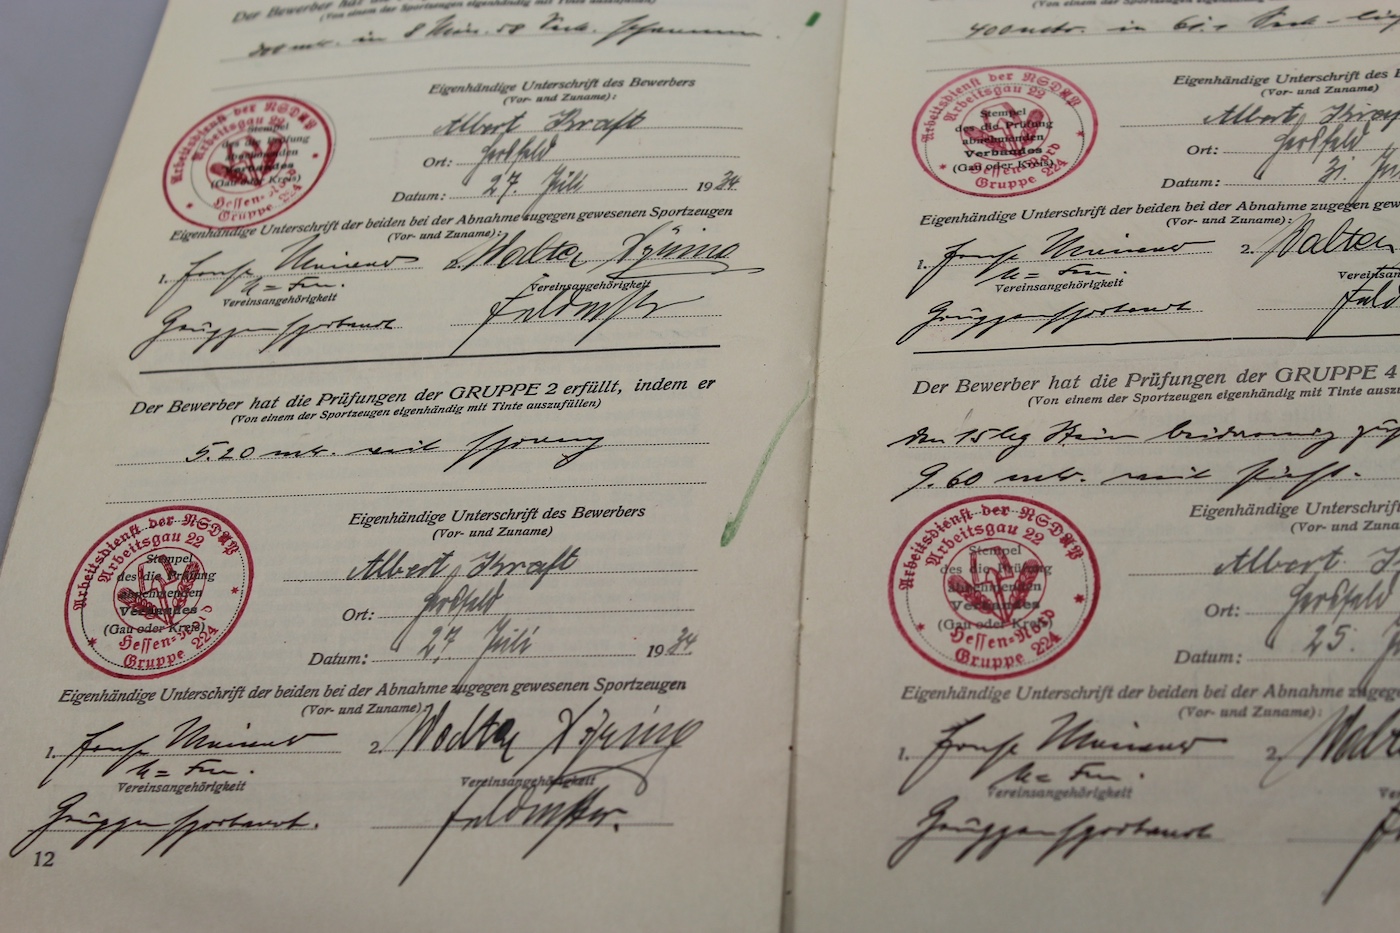 Der Bewerber hat die
(Von einem der Sportzeugen eigenhändig mit Tinte auszufüllen)
in 8 Min. 58 Sek.
Eigenhändige Unterschrift des Bewerbers
(Vor- und Zuname):
Albert Kraft
Ort: Gersfeld
Datum: 27. Juli 1934
Arbeitsdienst der NSDAP
Arbeitsgau 22
Stempel
des die Prüfung
abnehmenden
Verbandes
(Gau oder Kreis)
Hessen-Nord
Gruppe 224
Eigenhändige Unterschrift der beiden bei der Abnahme zugegen gewesenen Sportzeugen
(Vor- und Zuname):
1. 2. Walter
Vereinsangehörigkeit Vereinsangehörigkeit
Gruppensportwart Feldmstr.
Der Bewerber hat die Prüfungen der GRUPPE 2 erfüllt, indem er
(Von einem der Sportzeugen eigenhändig mit Tinte auszufüllen)
5.20 mtr. weit sprang
Eigenhändige Unterschrift des Bewerbers
(Vor- und Zuname)
Albert Kraft
Ort: Gersfeld
Datum: 27. Juli 1934
Arbeitsdienst der NSDAP
Arbeitsgau 22
Stempel
des die Prüfung
abnehmenden
Verbandes
(Gau oder Kreis)
Hessen-Nord
Gruppe 224
Eigenhändige Unterschrift der beiden bei der Abnahme zugegen gewesenen Sportzeugen
(Vor- und Zuname):
1. 2. Walter
Vereinsangehörigkeit Vereinsangehörigkeit
Gruppensportwart. Feldmstr.
12
(Von einem der Sportzeugen eigenhändig mit Tinte
400 mtr. in Sek.
Eigenhändige Unterschrift des
(Vor- und Zuname):
Albert
Ort: Gersfeld
Datum: 31.
Arbeitsdienst der NSDAP
Arbeitsgau 22
Stempel
des die Prüfung
abnehmenden
Verbandes
(Gau oder Kreis)
Hessen-Nord
Gruppe 224
Eigenhändige Unterschrift der beiden bei der Abnahme zugegen
(Vor- und Zuname):
1. 2. Walter
Vereinsangehörigkeit
Gruppensportwart
Der Bewerber hat die Prüfungen der GRUPPE 4
(Von einem der Sportzeugen eigenhändig mit Tinte
den 15 kg Stein beidarmig
9.60 mtr. weit
Eigenhändige Unterschrift
(Vor- und
Albert
Ort: Gersfeld
Datum: 25.
Arbeitsdienst der NSDAP
Arbeitsgau 22
Stempel
des die Prüfung
abnehmenden
Verbandes
(Gau oder Kreis)
Hessen-Nord
Gruppe 224
Eigenhändige Unterschrift der beiden bei der Abnahme
(Vor- und Zuname):
1. 2.
Vereinsangehörigkeit
Gruppensportwart